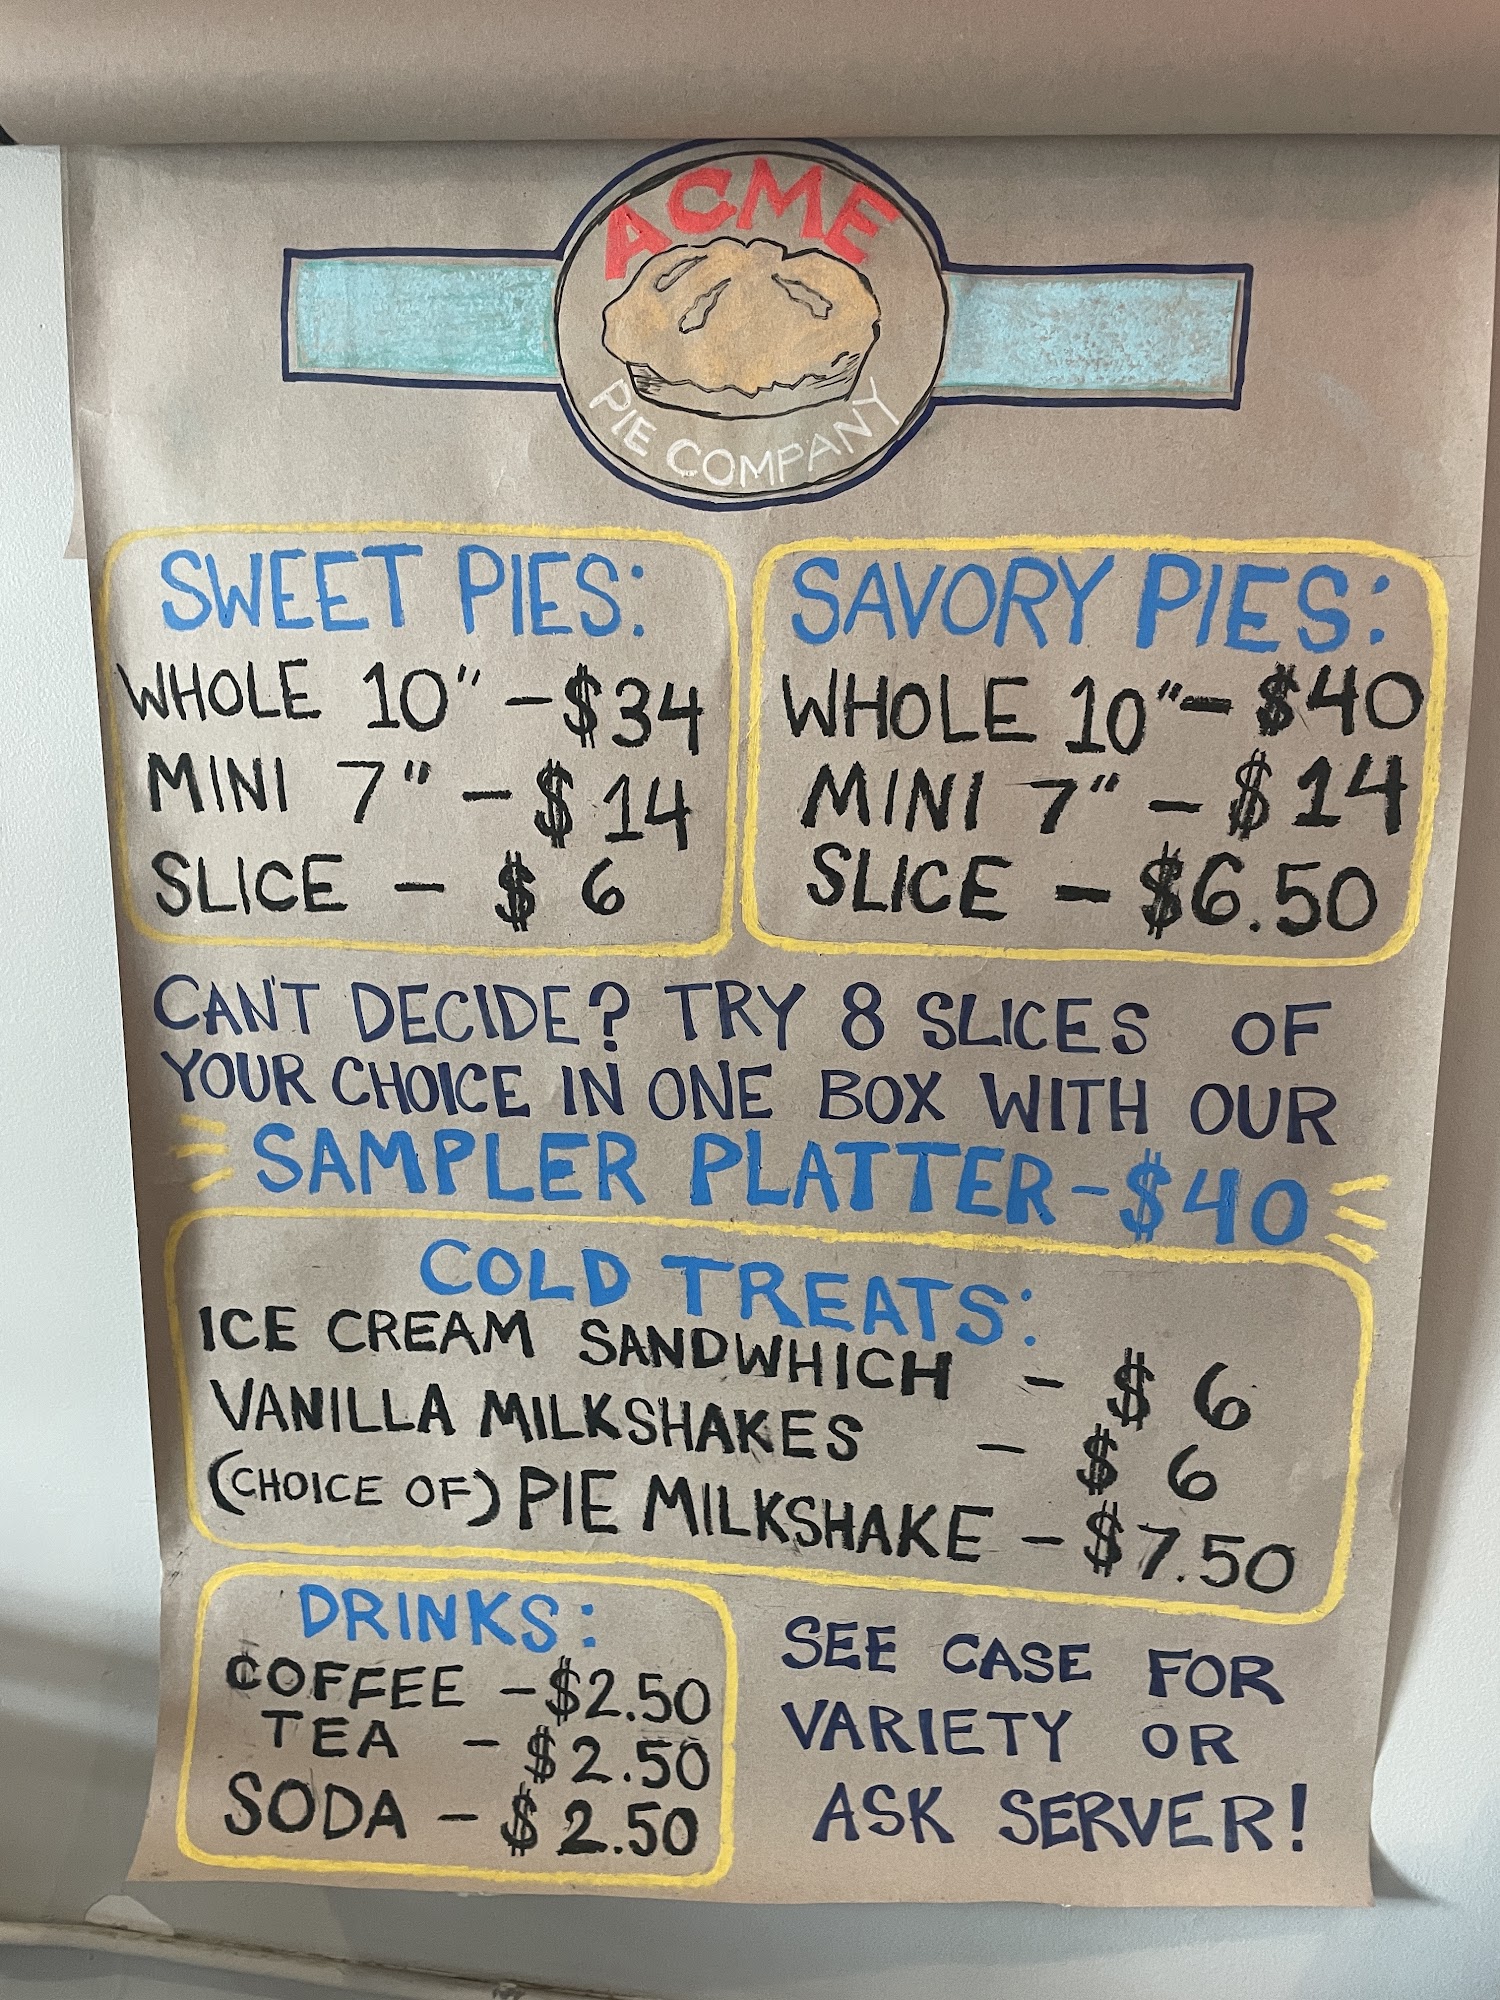 ACME
PIE COMPANY
SWEET PIES:
WHOLE 10" - $34
MINI 7" - $14
SLICE - $6
SAVORY PIES:
WHOLE 10" - $40
MINI 7" - $14
SLICE - $6.50
CAN'T DECIDE? TRY 8 SLICES OF
YOUR CHOICE IN ONE BOX WITH OUR
SAMPLER PLATTER - $40
COLD TREATS:
ICE CREAM SANDWHICH - $6
VANILLA MILKSHAKES - $6
(CHOICE OF) PIE MILKSHAKE - $7.50
DRINKS:
COFFEE - $2.50
TEA - $2.50
SODA - $2.50
SEE CASE FOR
VARIETY OR
ASK SERVER!